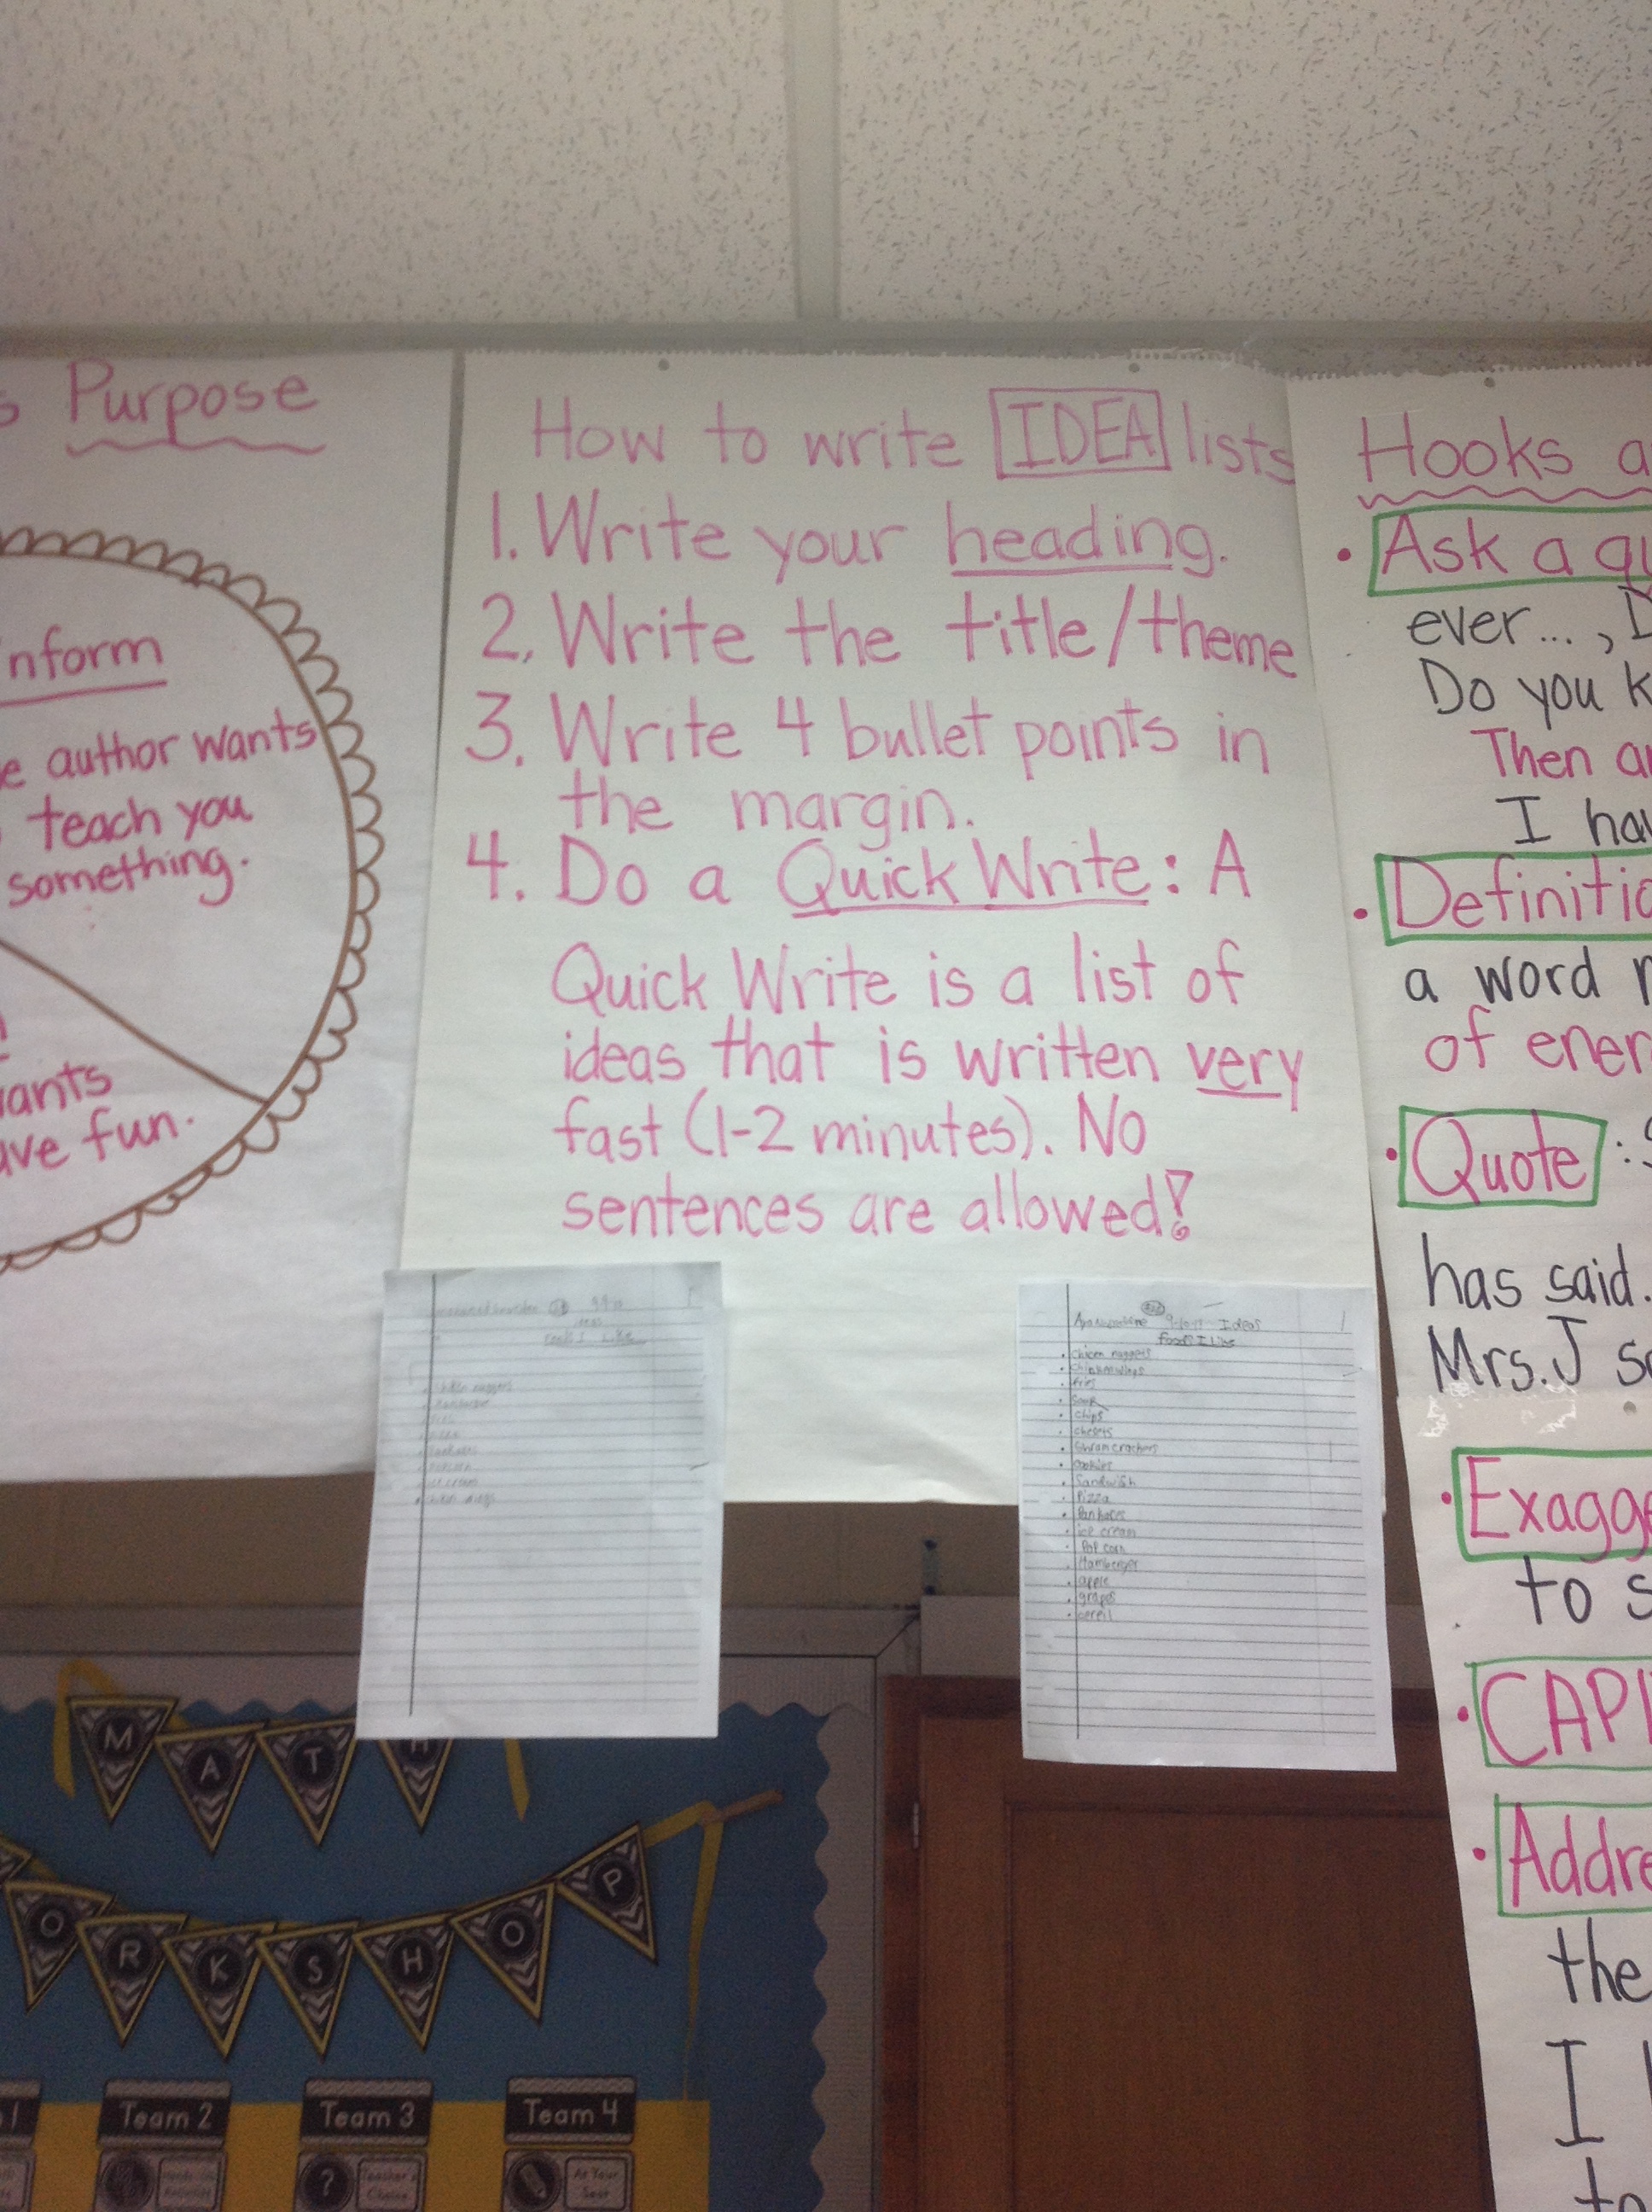 Purpose
nform
author wants
teach you
something.
ants
ave fun.
How to write IDEA lists
1. Write your heading.
2. Write the title/theme
3. Write 4 bullet points in
the margin.
4. Do a Quick Write: A
Quick Write is a list of
ideas that is written very
fast (1-2 minutes). No
sentences are allowed!
Hooks a
• Ask a qu
ever..., I
Do you k
Then a
I ha
• Definitio
a word
of ener
• Quote :
has said.
Mrs. J
• Exagge
to s
• CAPI
• Addre
the
I
to
Ideas
Foods I Like
• Chicen nuggets
• fries
• Soup
• Chips
• Cookies
• Sandwish
• Pizza
• ice cream
• Pop corn
• Hamberger
• apple
• grapes
• cereil
MATH
ORKSHOP
Team 2
Team 3
Team 4
?
Teacher's
Choice
At Your
Seat